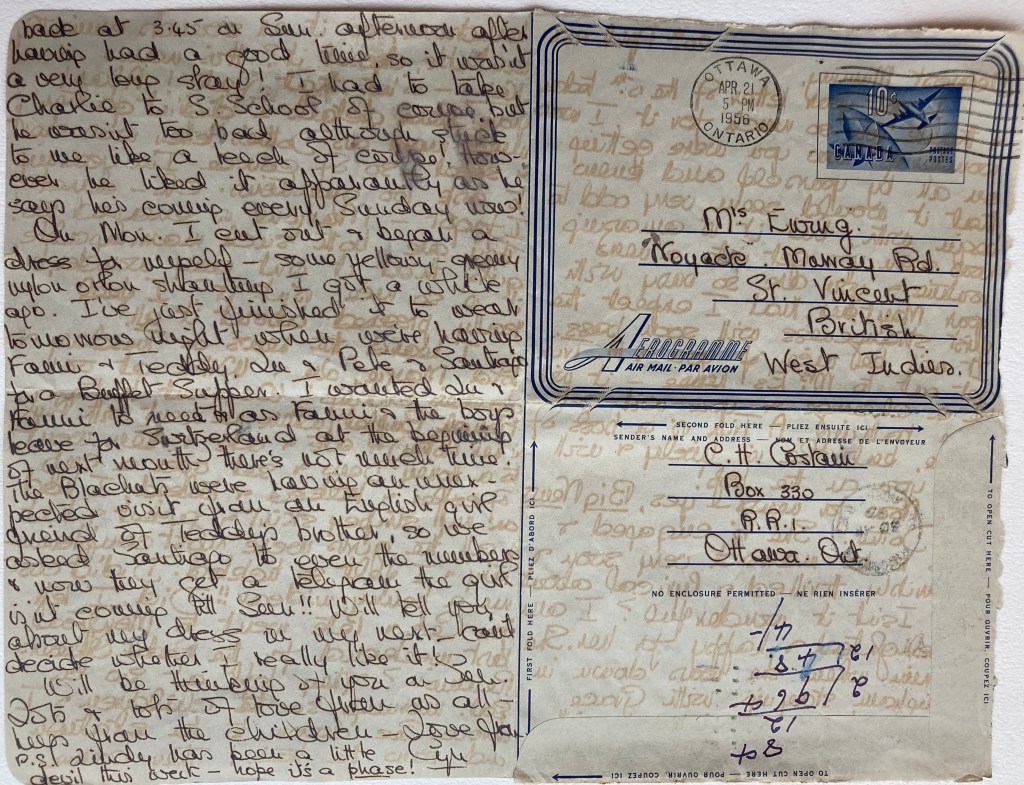 back at 3.45 on Sun. afternoon after
having had a good time, so it wasn't
a very long stay! I had to take
Charlie to S. School of course but
he wasn't too bad although stuck
to me like a leech of course! How-
ever he liked it apparantly as he
says he's coming every Sunday now!
On Mon. I cut out & began a
dress for myself – some yellowy-greeny
nylon orlon shantung I got a while
ago. I've just finished it to wear
tomorrow night when we're having
Fanni & Teddy, Lu & Pete & Santiago
for a Buffet Supper. I wanted Lu &
Fanni to meet & as Fanni & the boys
leave for Switzerland at the beginning
of next month there's not much time.
The Blachuts were having an unex-
pected visit from an English girl
friend of Teddy's brother, so we
asked Santiago to even the numbers
& now they get a telegram the girl
isn't coming till Seen!! Will tell you
about my dress in my next – can't
decide whether I really like it!
Will be thinking of you on Sun.
Lots & lots of love from us all –
from the children – Love from
Cyn
P.S. Lindy has been a little
devil this week – hope it's a phase!
OTTAWA
APR. 21
5 PM
1956
ONTARIO
10¢
CANADA
POSTAGE
POSTES
Mrs Ewing.
Noyade. Murray Rd.
St. Vincent
British
West Indies.
AEROGRAMME
AIR MAIL · PAR AVION
SECOND FOLD HERE — PLIEZ ENSUITE ICI
SENDER'S NAME AND ADDRESS — NOM ET ADRESSE DE L'ENVOYEUR
C.H. Costain
Box 330
R.R.1.
Ottawa. Ont.
NO ENCLOSURE PERMITTED — NE RIEN INSÉRER
FIRST FOLD HERE — PLIEZ D'ABORD ICI
TO OPEN CUT HERE — POUR OUVRIR, COUPEZ ICI
TO OPEN CUT HERE — POUR OUVRIR, COUPEZ ICI
12